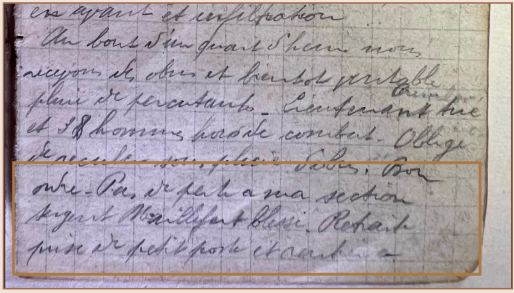 en avant et infiltration
Au bout d'un quart d'heure nous
recevons des obus et bientôt véritable
pluie de percutants - Lieutenant tué
et 38 hommes hors de combat. Obligé
de reculer sous pluie d'obus. Bon
ordre - Pas de perte à ma section
sergent blessé. Retrait
prise de petit poste et